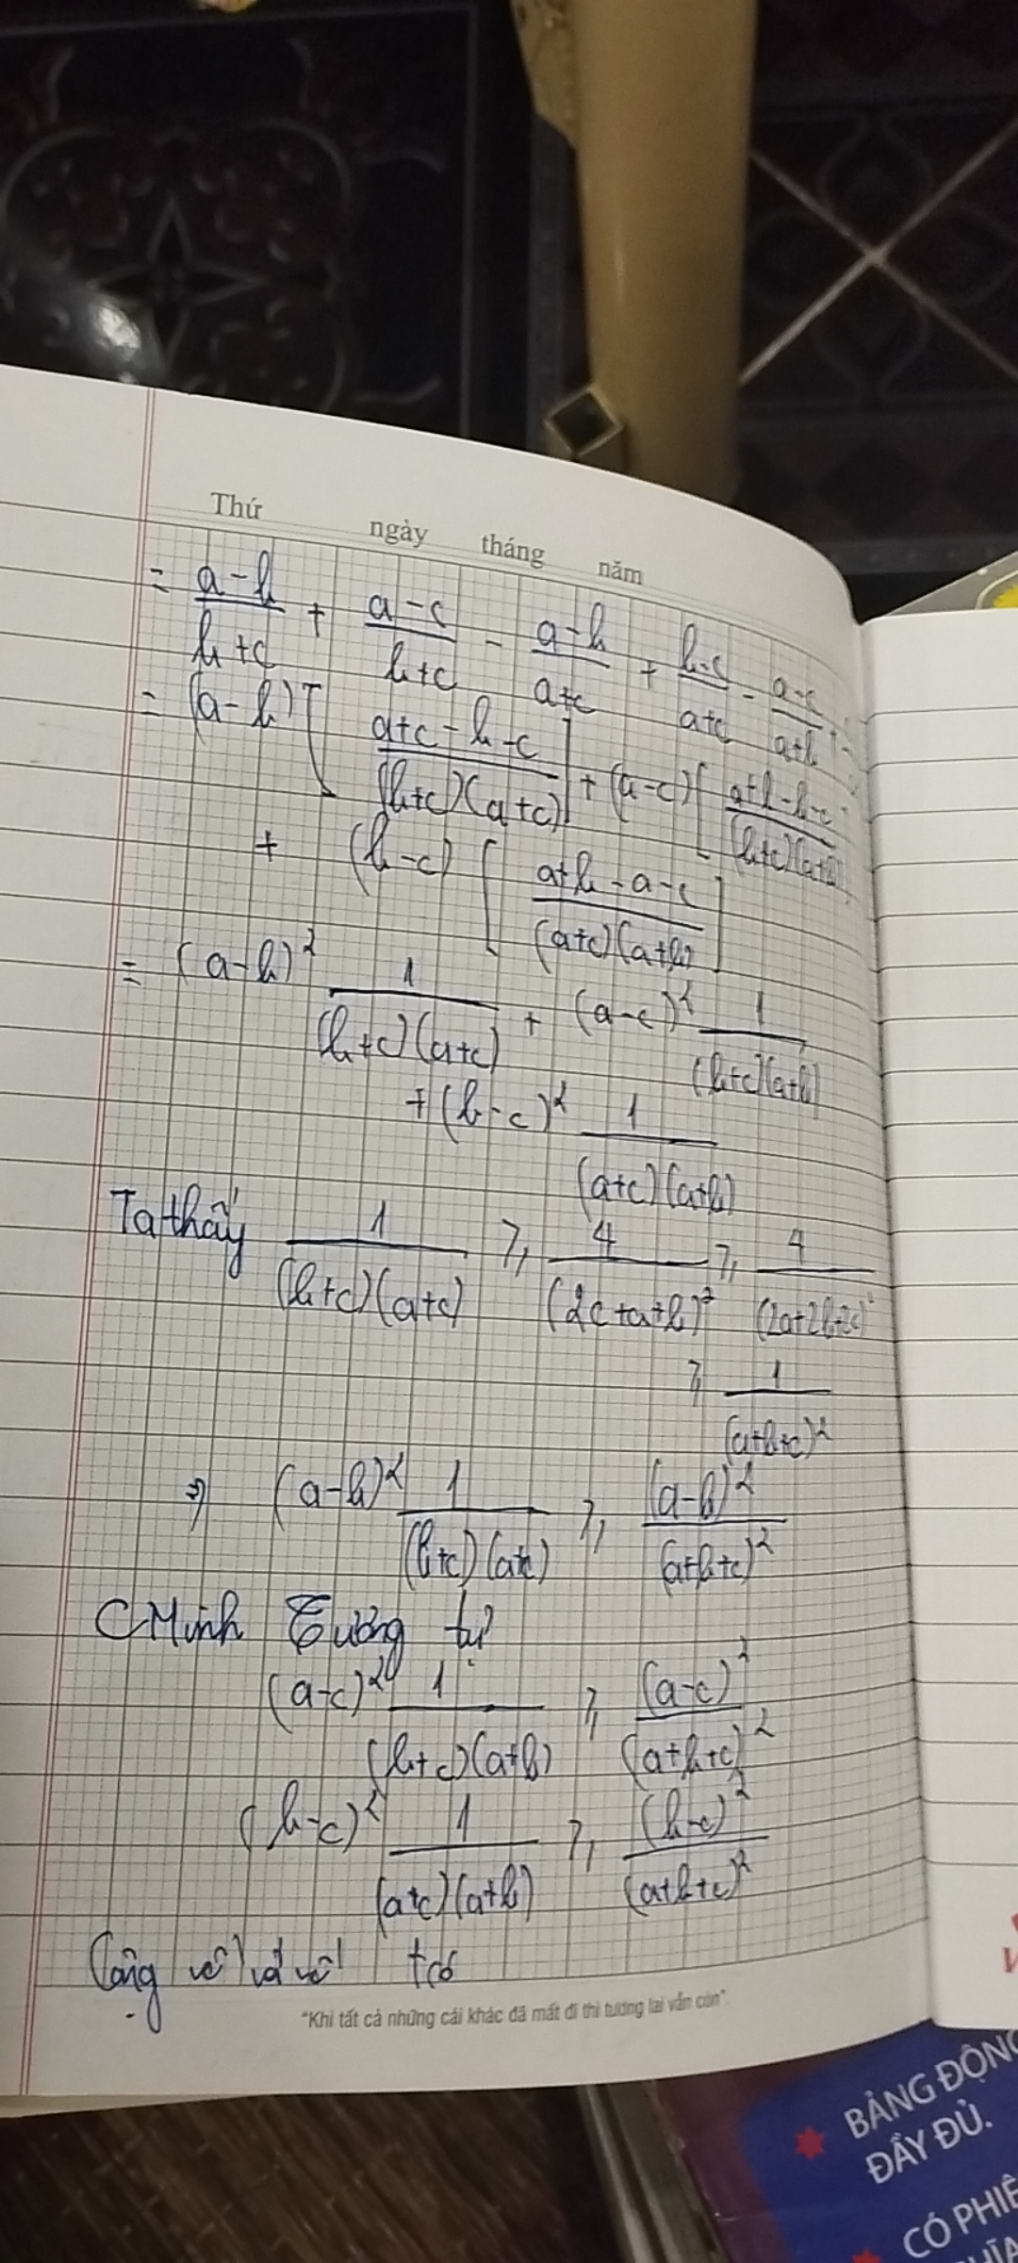 Thứ ngày tháng năm
= (a-b)/(b+c) + (a-c)/(b+c) - (a-b)/(a+c) + (b-c)/(a+c) - (a-c)/(a+b)
= (a-b) [(a+c-b-c)/((b+c)(a+c))] + (a-c) [(a+b-b-c)/((b+c)(a+b))
+ (b-c) [(a+b-a-c)/((a+c)(a+b))]
= (a-b)² 1/((b+c)(a+c)) + (a-c)² 1/((b+c)(a+b))
+ (b-c)² 1/((a+c)(a+b))
Ta thấy 1/((b+c)(a+c)) ≥ 4/(2c+a+b)² ≥ 4/(2a+2b+2c)²
≥ 1/(a+b+c)²
⇒ (a-b)² 1/((b+c)(a+c)) ≥ (a-b)²/(a+b+c)²
CMinh Tương tự
(a-c)² 1/((b+c)(a+b)) ≥ (a-c)²/(a+b+c)²
(b-c)² 1/((a+c)(a+b)) ≥ (b-c)²/(a+b+c)²
Cộng vế với vế tcó
"Khi tất cả những cái khác đã mất đi thì tương lai vẫn còn".
BẢNG ĐỘNG
ĐẦY ĐỦ.
CÓ PHIÊ